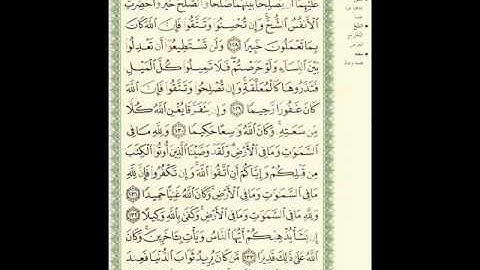 عَلَيْهِمَا أَن يُصْلِحَا بَيْنَهُمَا صُلْحًا وَٱلصُّلْحُ خَيْرٌ وَأُحْضِرَتِ
ٱلْأَنفُسُ ٱلشُّحَّ وَإِن تُحْسِنُوا۟ وَتَتَّقُوا۟ فَإِنَّ ٱللَّهَ كَانَ
بِمَا تَعْمَلُونَ خَبِيرًا ١٢٨ وَلَن تَسْتَطِيعُوٓا۟ أَن تَعْدِلُوا۟
بَيْنَ ٱلنِّسَآءِ وَلَوْ حَرَصْتُمْ فَلَا تَمِيلُوا۟ كُلَّ ٱلْمَيْلِ
فَتَذَرُوهَا كَٱلْمُعَلَّقَةِ وَإِن تُصْلِحُوا۟ وَتَتَّقُوا۟ فَإِنَّ ٱللَّهَ
كَانَ غَفُورًا رَّحِيمًا ١٢٩ وَإِن يَتَفَرَّقَا يُغْنِ ٱللَّهُ كُلًّا
مِّن سَعَتِهِۦ وَكَانَ ٱللَّهُ وَٰسِعًا حَكِيمًا ١٣٠ وَلِلَّهِ مَا فِى
ٱلسَّمَٰوَٰتِ وَمَا فِى ٱلْأَرْضِ وَلَقَدْ وَصَّيْنَا ٱلَّذِينَ أُوتُوا۟ ٱلْكِتَٰبَ
مِن قَبْلِكُمْ وَإِيَّاكُمْ أَنِ ٱتَّقُوا۟ ٱللَّهَ وَإِن تَكْفُرُوا۟ فَإِنَّ لِلَّهِ
مَا فِى ٱلسَّمَٰوَٰتِ وَمَا فِى ٱلْأَرْضِ وَكَانَ ٱللَّهُ غَنِيًّا حَمِيدًا ١٣١
وَلِلَّهِ مَا فِى ٱلسَّمَٰوَٰتِ وَمَا فِى ٱلْأَرْضِ وَكَفَىٰ بِٱللَّهِ وَكِيلًا ١٣٢
إِن يَشَأْ يُذْهِبْكُمْ أَيُّهَا ٱلنَّاسُ وَيَأْتِ بِـَٔاخَرِينَ وَكَانَ ٱللَّهُ
عَلَىٰ ذَٰلِكَ قَدِيرًا ١٣٣ مَّن كَانَ يُرِيدُ ثَوَابَ ٱلدُّنْيَا فَعِندَ